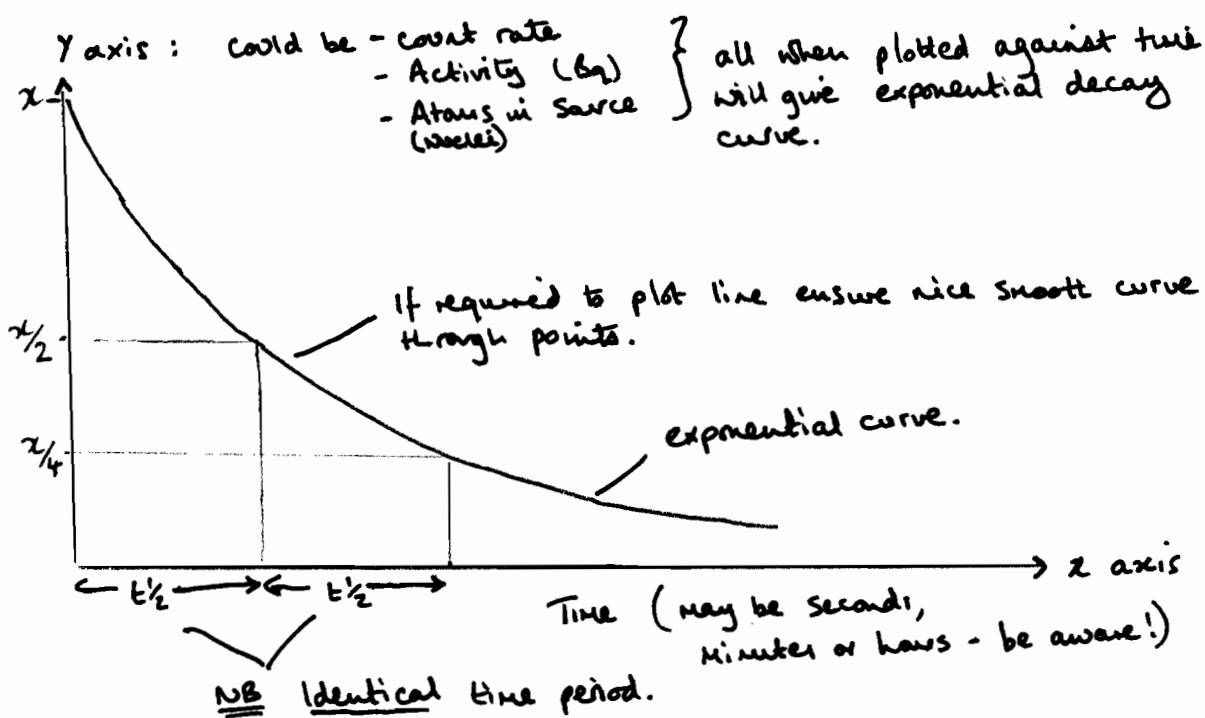 Y axis : could be - count rate
- Activity (Bq)
- Atoms in Source
(Nuclei)
all when plotted against time
will give exponential decay
curve.
x
If required to plot line ensure nice smooth curve
through points.
x/2
exponential curve.
x/4
t½ t½
x axis
Time (may be seconds,
minutes or hours - be aware!)
NB Identical time period.